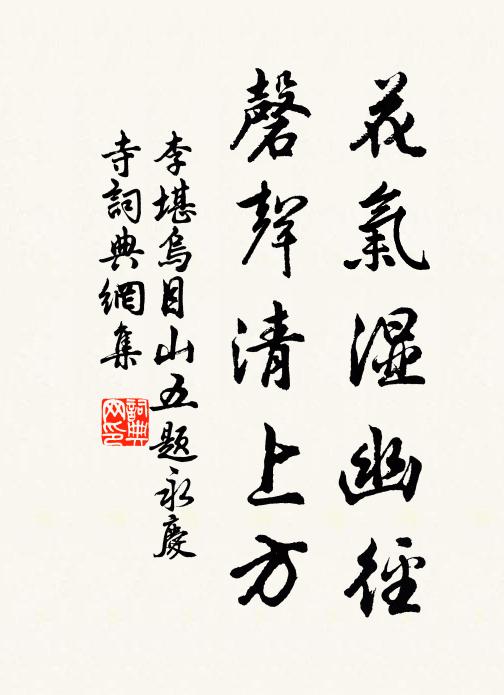 花氣濕幽徑
磬聲清上方
李堪烏目山五題永慶
寺詞典網集
詞典网印